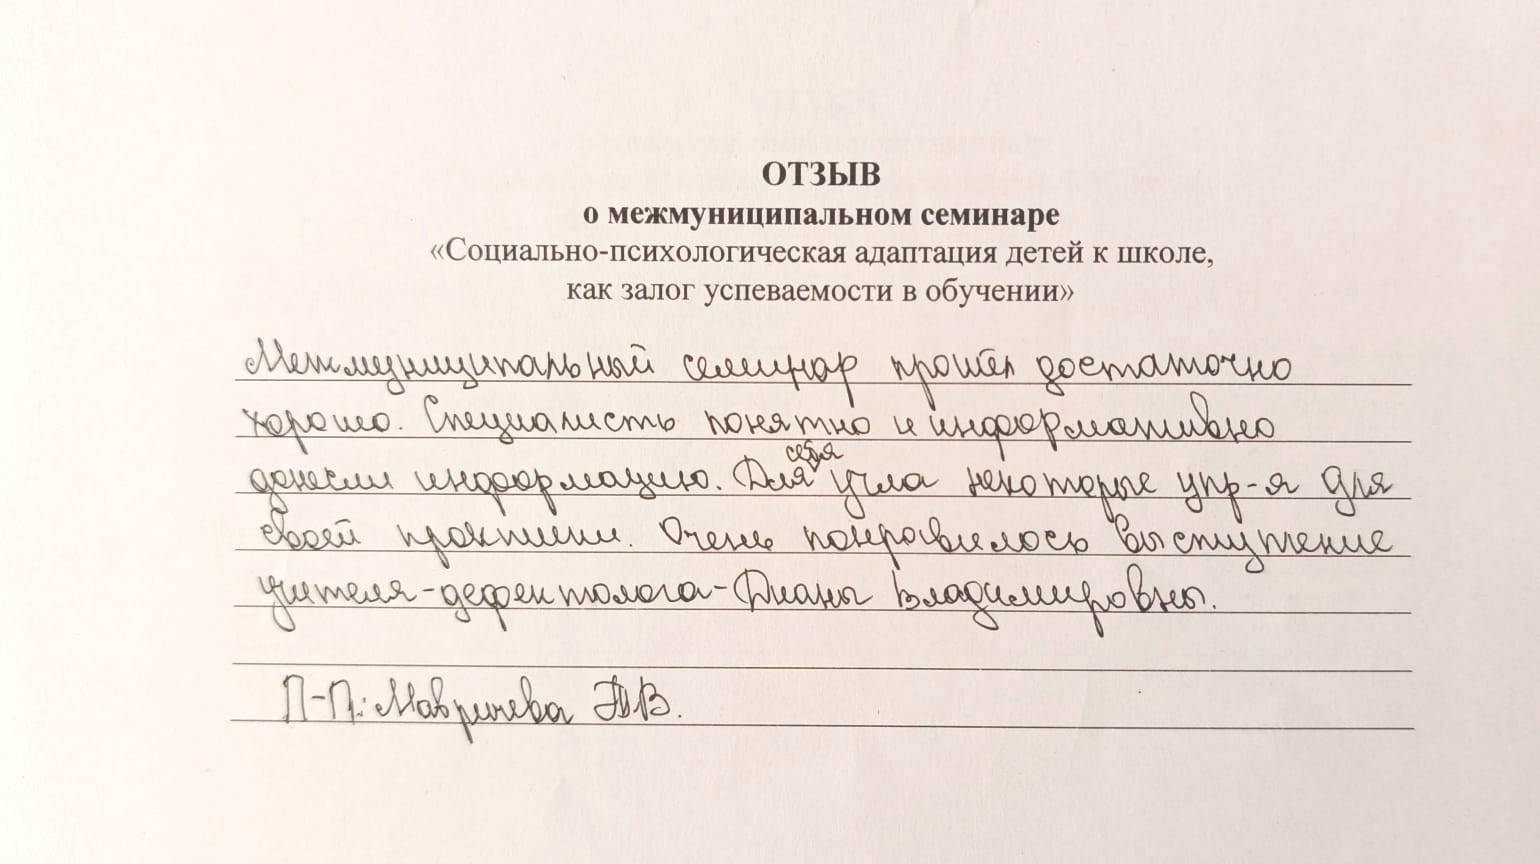 ОТЗЫВ
о межмуниципальном семинаре
«Социально-психологическая адаптация детей к школе,
как залог успеваемости в обучении»
Межмуниципальный семинар прошёл достаточно
хорошо. Специалисты понятно и информативно
донесли информацию. Для себя учла некоторые упр-я для
своей практики. Очень понравилось выступление
учителя-дефектолога-Дианы Владимировны.
П-П: Мавричева